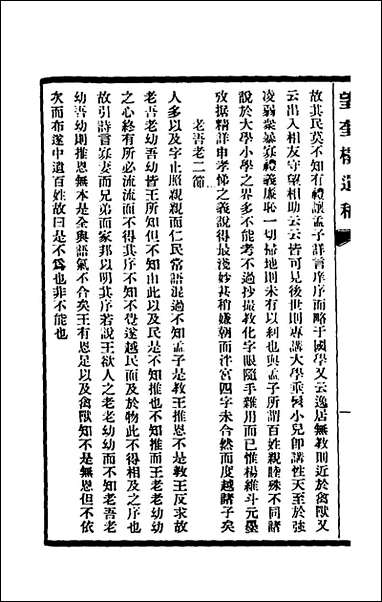 望奎樓遺稿
故其民莫不知有禮讓孟子詳言庠序而略于國學又云逸居無教則近於禽獸又
云出入相友守望相助云云皆可見後世則專講大學垂髫小兒卽講性天至於強
凌弱衆暴寡禮義廉恥一切掃地則未有以利也與孟子所謂百姓親睦殊不同諸
說於大學小學之界多不能考不過抄撮敎化字眼隨手雜用而已惟楊維斗元墨
攷据精詳申孝悌之義說得最淺妙其稍嫌朝而泮宮四字未合然而度越諸子矣
老吾老二節
人多以及字止照親親而仁民常語混過不知孟子是敎王推恩不是敎王反求故
老吾老幼吾幼皆王所知但不知由此以及民是不知推也不知推而王老老幼幼
之心終有所必流流而不得其序不知不覺遂越民而及於物此不得相及之序也
故引詩言寡妻而兄弟而家邦以明其序若說王欲人之老老幼幼而不知老吾老
幼吾幼則推恩無本是全與語氣不合矣王有恩足以及禽獸知不是無恩但不依
次而布遂中遺百姓故曰是不爲也非不能也